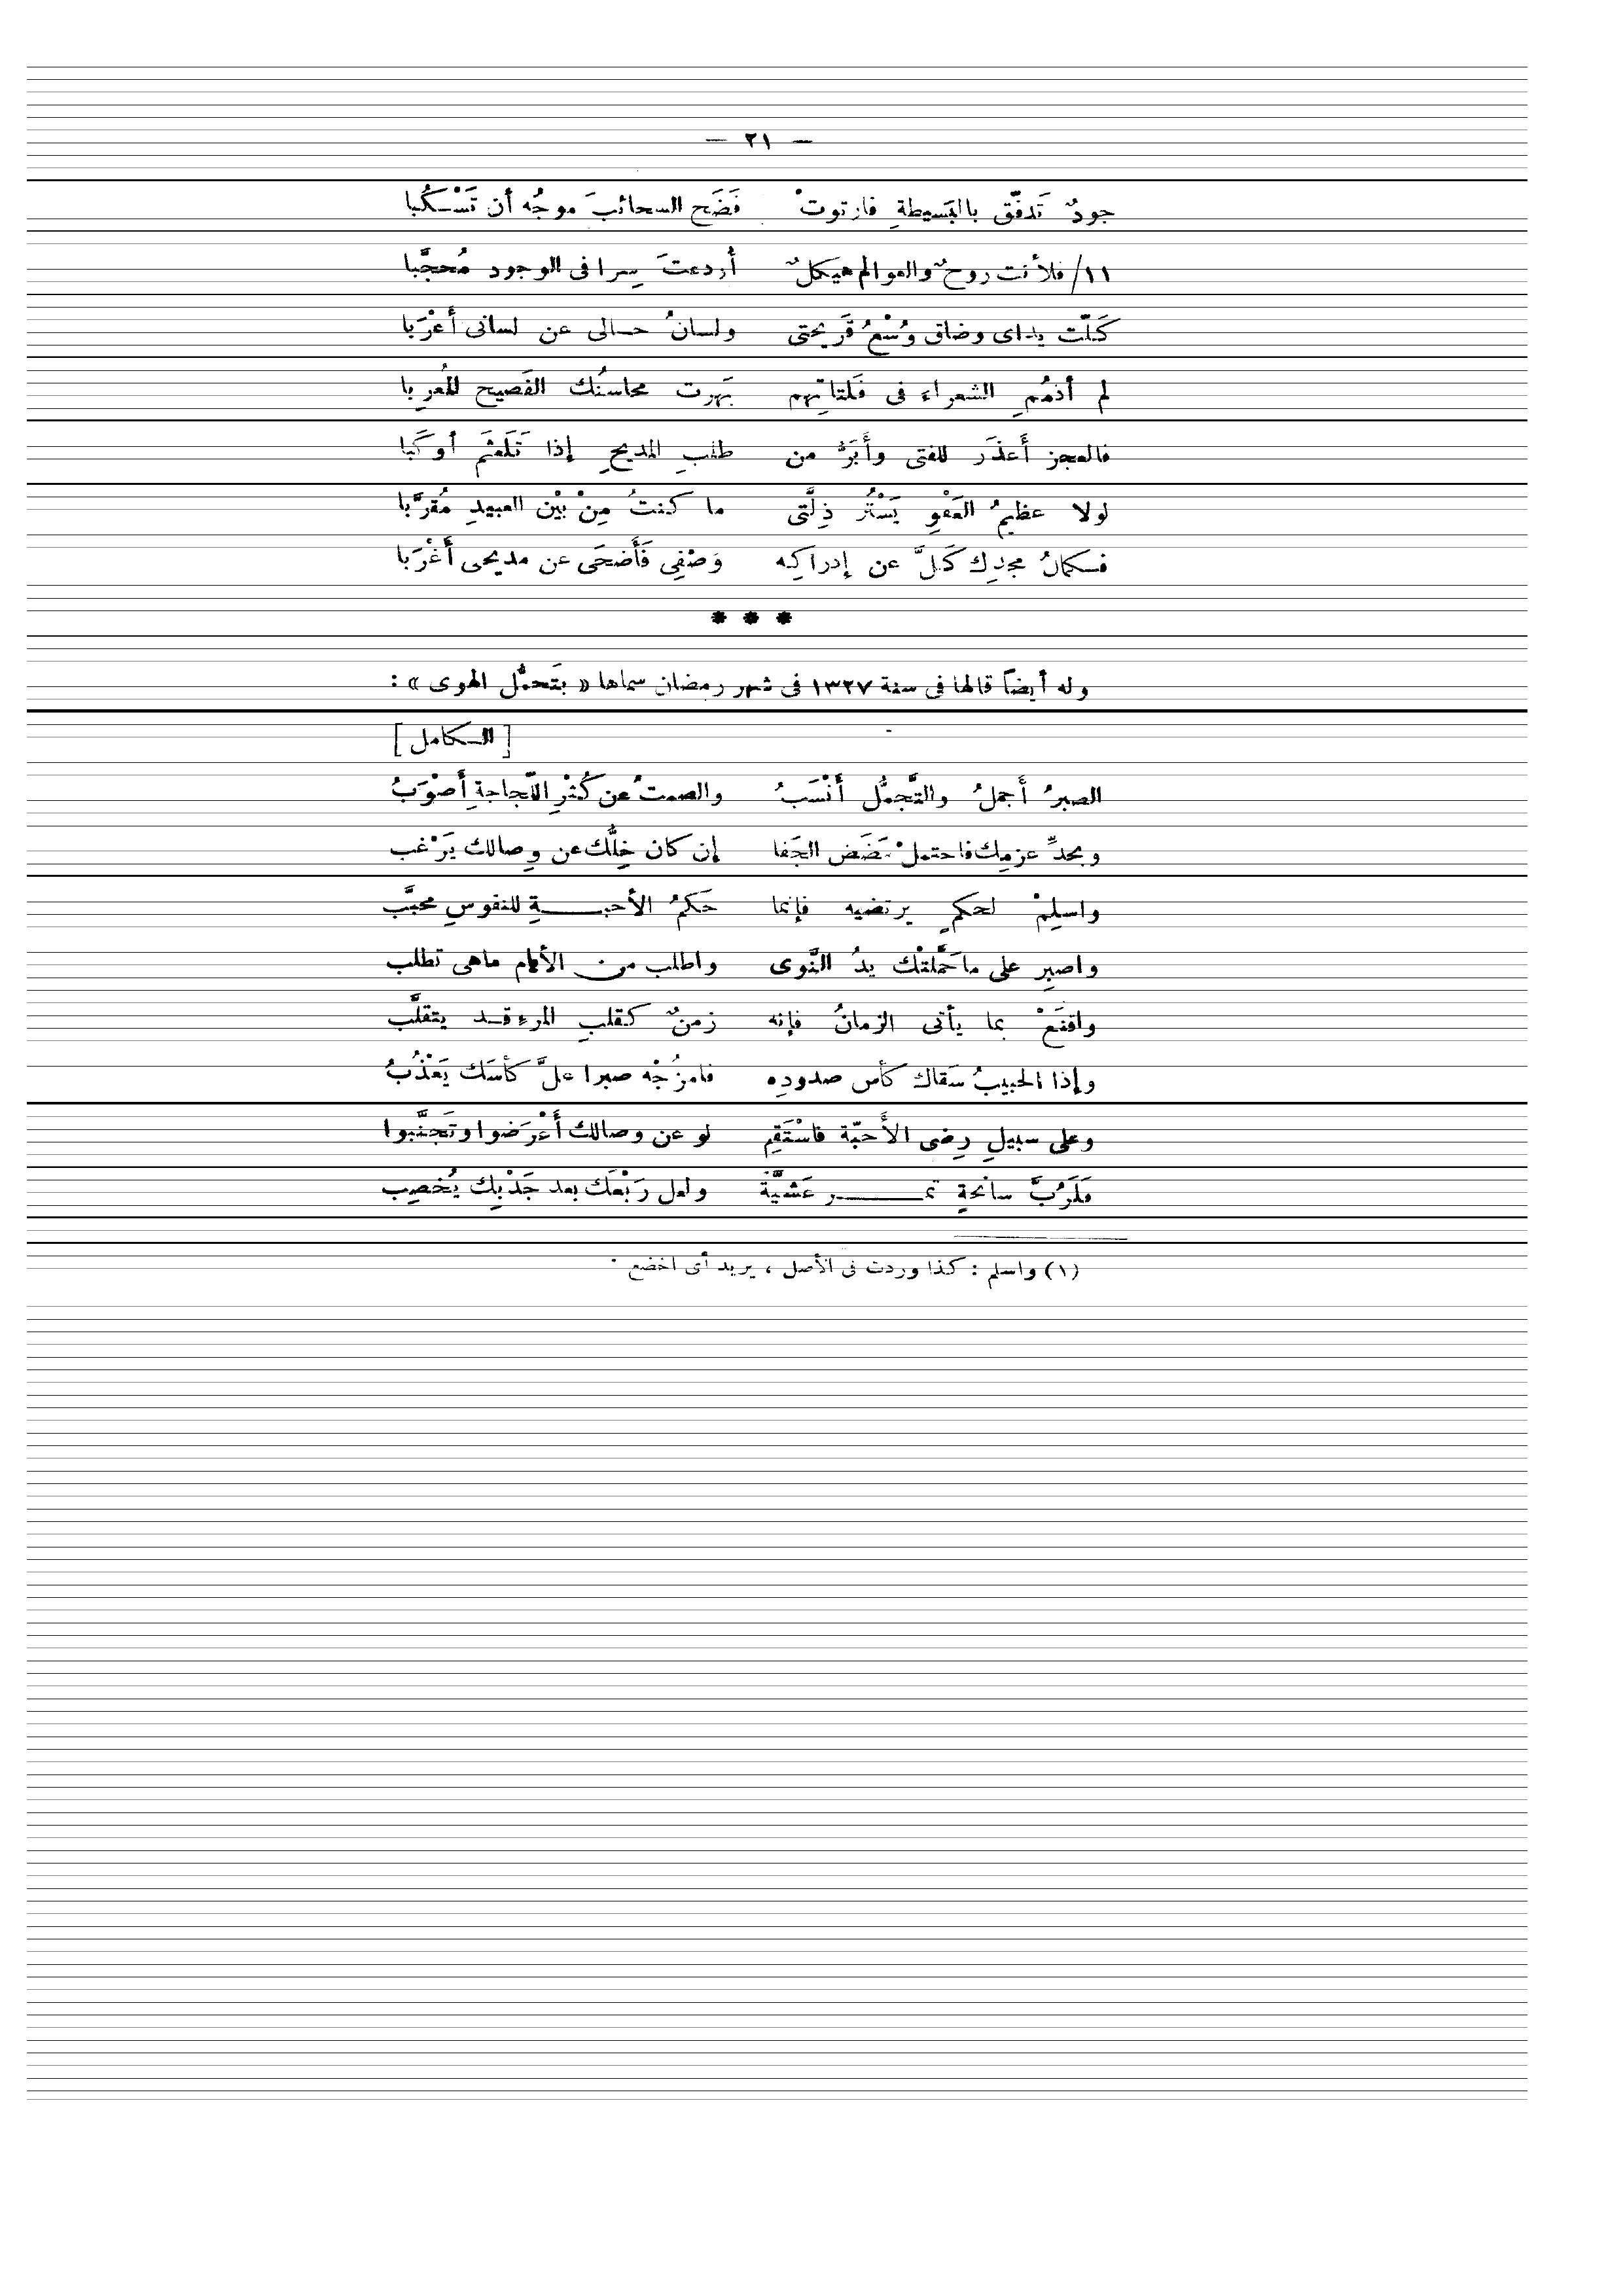 — ٢١ —
جودٌ تَدفّق بالبَسيطةِ فارتوتْ فَضَح السحائبَ موجُه أن تَسْكُبا
١١/ فلأنت روحٌ والعوالم هيكلٌ أُردعتَ سِرا فى الوجود مُحجَّبا
كَلّت يداى وضاق وُسْعُ قَريحتى ولسانُ حالى عن لسانى أعْرَبا
لم أذمُمِ الشعراء فى فَلتاتِهم بَهرت محاسنُك الفَصيح المُعرِبا
فالعجز أَعذَر للفتى وأَبَرُّ من طلبِ المديحِ إذا تَلَعثَم أو كَبا
لولا عظيمُ العَفْوِ يَسْتُر ذِلَّتى ما كنتُ مِنْ بيْن العبيدِ مُقرَّبا
فكمالُ مجدِك كَلَّ عن إدراكِه وَصْفِى فَأَضحَى عن مديحى أَغْرَبا
* * *
وله أيضاً قالها فى سنة ١٣٢٧ فى شهر رمضان سماها « بتَحمُّل الهوى » :
[ الكامل ]
الصبرُ أَجملُ والتَّجمُّل أَنْسَبُ والصمتُ عن كُثْرِ اللَّجاجةِ أَصْوَبُ
وبحدِّ عزمِك فاحتملْ مَضَض الجَفا إن كان خِلُّك عن وِصالك يَرْغب
واسلِمْ لحكمٍ يرتضيه فإنما حَكمُ الأحبةِ للنفوسِ محبَّب
واصبِر على ما حَمَّلتْك يدُ النَّوى واطلب من الأيام ماهى تطلب
واقنَعْ بما يأتى الزمانُ فإنه زمنٌ كقلبِ المرءِ قد يتقلَّب
وإذا الحبيبُ سَقاك كأس صدودِه فامزُجْه صبرا علَّ كأسَك يَعْذُبُ
وعلى سبيلِ رِضى الأَحبّة فاسْتَقِم لو عن وصالك أَعْرَضوا وتَجنَّبوا
فَلَرُبَّ سانحةٍ تمر عَشيَّةً ولعل رَبْعَك بعد جَدْبِك يُخصِب
(١) واسلم : كذا وردت فى الأصل ، يريد أى اخضع .